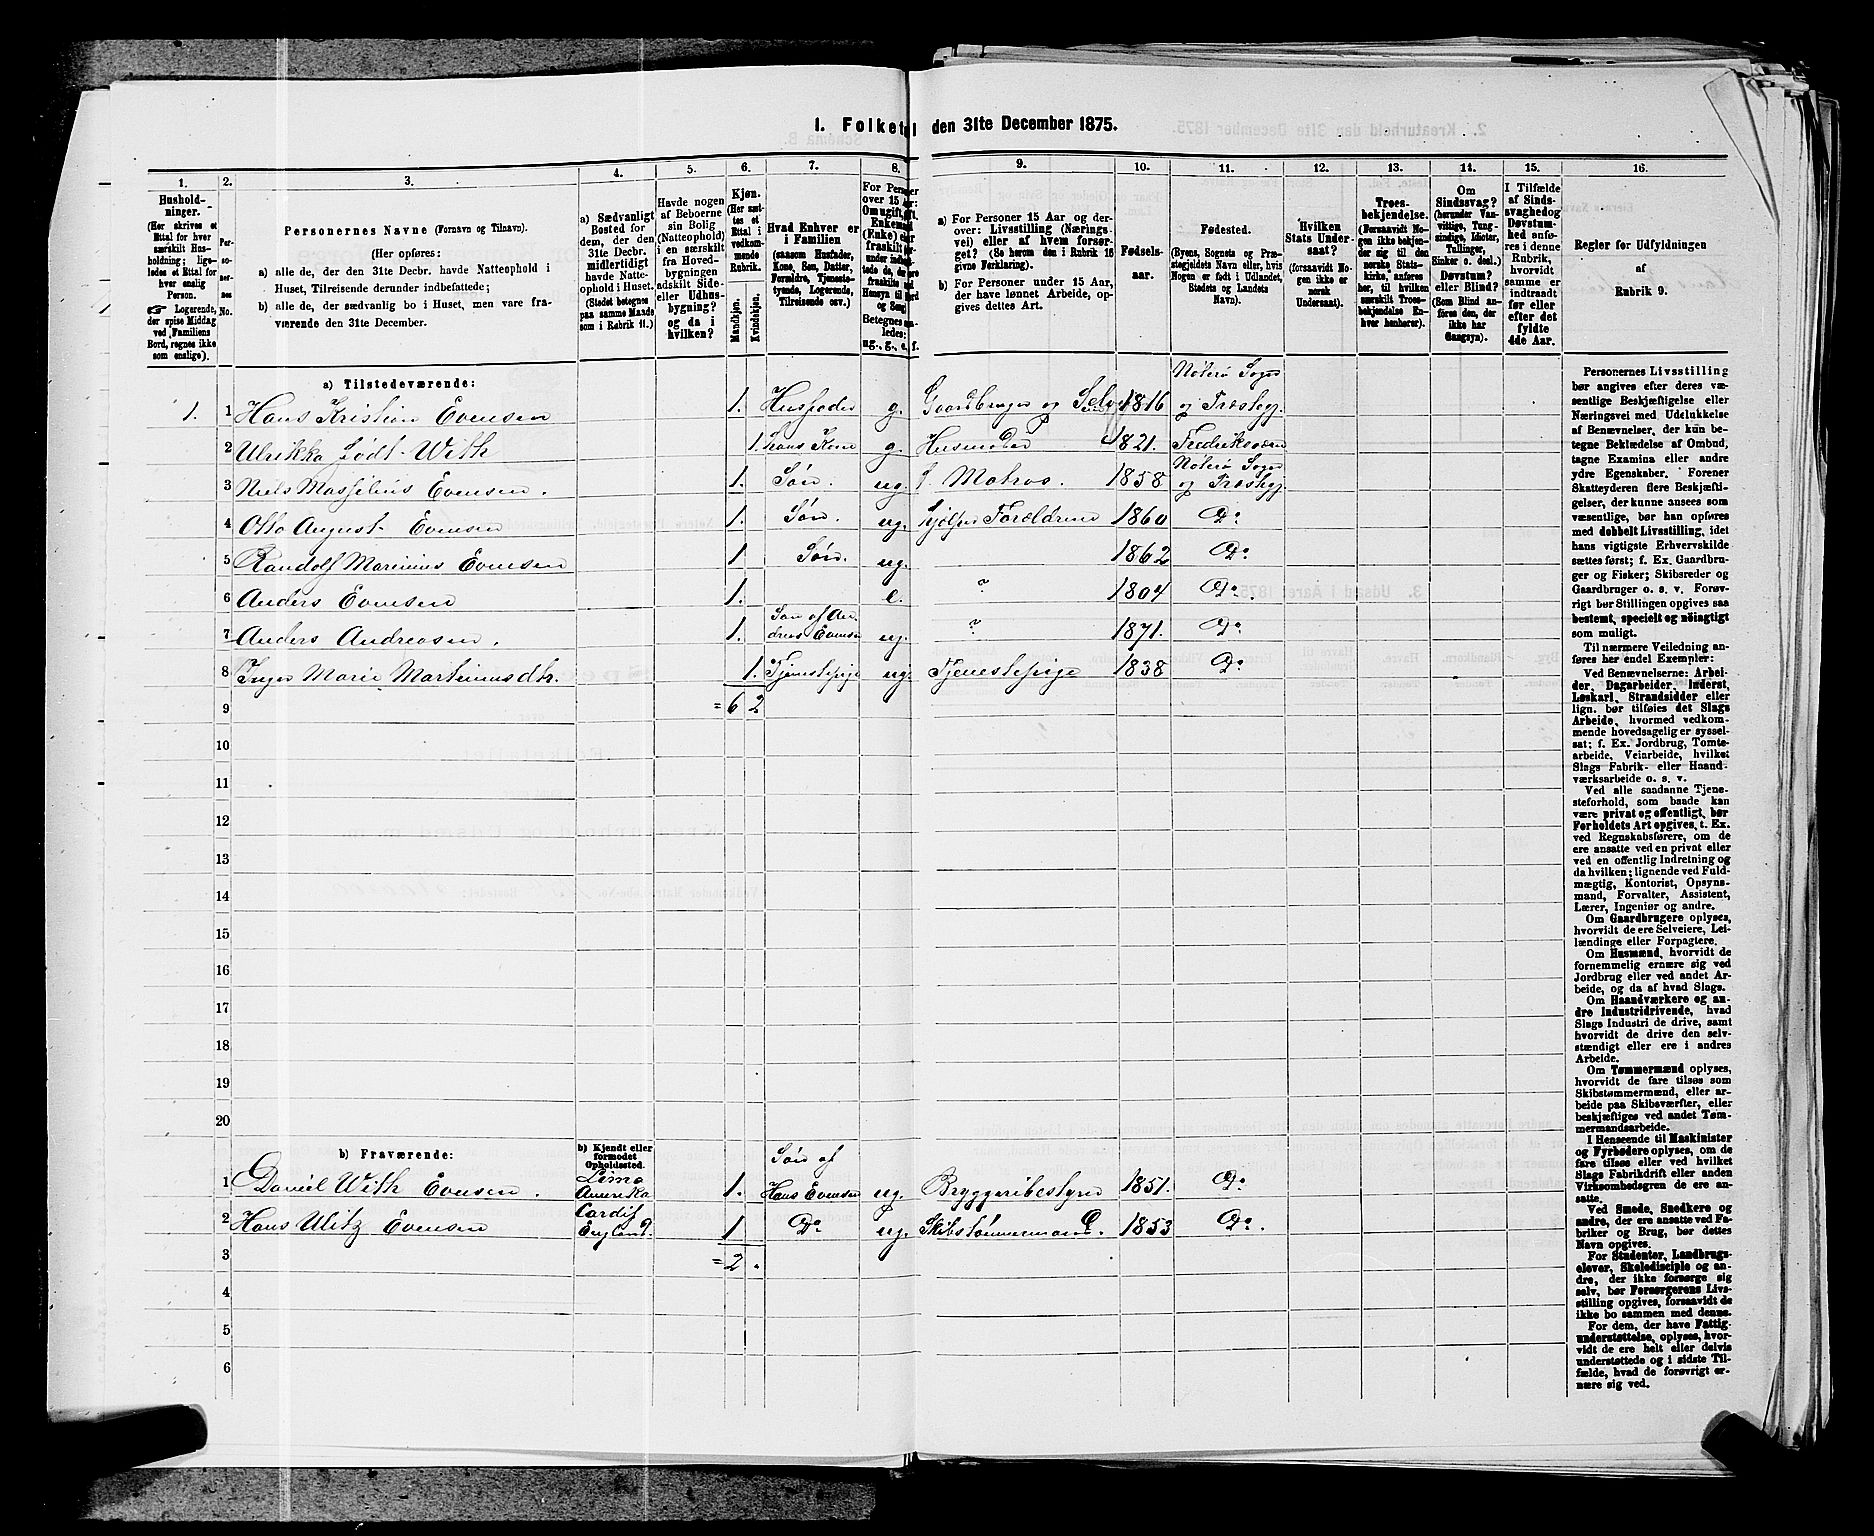 1. Folketal den 31te December 1875.
1. 2. 3. 4. 5. 6. 7. 8. 9. 10. 11. 12. 13. 14. 15. 16.
Hushold-
ninger.
(Her skrives et
Ettal for hver
særskilt Hus-
holdning; lige-
ledes et Ettal for
hver enslig
Person.
☞ Logerende,
der spise Middag
ved Familiens
Bord, regnes ikke
som enslige).
Per-
so-
ner-
nes
No.
Personernes Navne (Fornavn og Tilnavn).
(Her opføres:
a) alle de, der den 31te Decbr. havde Natteophold i
Huset, Tilreisende derunder indbefattede;
b) alle de, der sædvanlig bo i Huset, men vare fra-
værende den 31te December.
a) Sædvanligt
Bosted for
dem, der den
31te Decbr.
midlertidigt
havde Natte-
ophold i Huset.
(Stedet betegnes
paa samme Maade
som i Rubrik 11.)
Havde nogen
af Beboerne
sin Bolig
(Natteophold)
i en særskilt
fra Hoved-
bygningen
adskilt Side-
eller Udhus-
bygning?
og da i
hvilken?
Kjøn.
(Her sæt-
tes et
Ettal i
vedkom-
mende
Rubrik.
Mandkjøn.
Kvindekjøn.
Hvad Enhver er
i Familien
(saasom Husfader,
Kone, Søn, Datter,
Forældre, Tjeneste-
tyende, Logerende,
Tilreisende osv.)
For Personer
over 15 Aar:
Betegnes
ledes:
ug., g., e., f.
a) For Personer 15 Aar og der-
over: Livsstilling (Nærings-
vei) eller af hvem forsør-
get? (Se herom den i Rubrik 16
givne Forklaring).
b) For Personer under 15 Aar,
der have lønnet Arbeide, op-
gives dettes Art.
Fødsels-
aar.
Fødested.
(Byens, Sognets og Præ-
stegjeldets Navn eller, hvis
Nogen er født i Udlandet,
Stedets og Landets
Navn).
Hvilken
Stats Under-
saat?
(forsaavidt No-
gen ikke er
norsk
Undersaat).
Troes-
bekjendelse.
(Forsaavidt No-
gen ikke bekjen-
der sig til den
norske Stats-
kirke, anføres
her, til hvilken
særskilt Troes-
bekjendelse En-
hver henhører).
Om
Sindssvag?
(herunder Van-
vittige, Tung-
sindige, Idioter,
Tullinger,
Sinker o. desl.)
Døvstum?
eller Blind?
(Som Blind an-
føres den, der
ikke har
Gangsyn).
I Tilfælde
af Sinds-
svaghed og
Døvstum-
hed anfø-
res i denne
Rubrik,
hvorvidt
samme er
indtraadt
før eller
efter det
fyldte
4de Aar.
Regler for Udfyldningen
af
Rubrik 9.
a) Tilstedeværende:
1. 1 Hans Kristian Evensen 1. Husfader g. Gaardbruger og 1816 Nøterø Sogn og Præstegj.
2 Ulrikka født With 1. Hans Kone g. Husmoder 1821. Fredriksværn
3 Niels Evensen. 1. Søn. ug. Matros. 1858 Nøterø Sogn og Præstegj.
4 Otto August Evensen 1. Søn. ug. hjælper Forældrene 1860 Do
5 Randolf Marinius Evensen 1 Søn. ug. 1862 Do
6 Anders Evensen 1. e. ? 1804 Do.
7 Anders Andreasen. 1. Søn af An-
dreas Evensen ug. ? 1871. Do
8 Inger Marie Martiniusdtr. 1. Tjenestepige ug. Tjenestepige 1838 Do
9 = 6 2
10
11
12
13
14
15
16
17
18
19
20
b) Fraværende:
b) Kjendt eller
formodet
Opholdssted.
1 Daniel With Evensen. Lima
Amerika 1. Søn af
Hans Evensen ug. Bryggeribestyrer 1851. Do
2 Hans Ulitz Evensen Cardif
England. 1 Do ug. Skibstømmermand. 1853 Do.
3 = 2.
4
5
6
Personernes Livsstilling
bør angives efter deres væ-
sentlige Beskjæftigelse eller
Næringsvei med Udelukkelse
af Benævnelser, der kun be-
tegne Beklædelse af Ombud,
tagne Examina eller andre
ydre Egenskaber. Forener
Skatteyderen flere Beskjæfti-
gelser, der kunne ansees som
væsentlige, bør han opføres
med dobbelt Livsstilling, idet
hans vigtigste Erhvervskilde
sættes først; f. Ex. Gaardbru-
ger og Fisker; Skibsreder og
Gaardbruger o. s. v. Forøv-
rigt bør Stillingen opgives saa
bestemt, specielt og nøiagtigt
som muligt.
Til nærmere Veiledning an-
føres her endel Exempler:
Ved Benævnelserne: Arbei-
der, Dagarbeider, Inderst,
Løskarl, Strandsidder eller
lign. bør tilføies det Slags
Arbeide, hvormed vedkom-
mende hovedsagelig er syssel-
sat; f. Ex. Jordbrug, Tomte-
arbeide, Veiarbeide, hvilket
Slags Fabrik- eller Haand-
værksarbeide o. s. v.
Ved alle saadanne Tjene-
steforhold, som baade kan
være privat og offentligt, bør
Forholdets Art opgives, t. Ex.
ved Regnskabsførere, om de
ere ansatte ved en privat eller
ved en offentlig Indretning og
da hvilken; lignende ved Fuld-
mægtig, Kontorist, Opsyns-
mand, Forvalter, Assistent,
Lærer, Ingeniør og andre.
Om Gaardbrugere oplyses,
hvorvidt de ere Selveiere, Lei-
lændinge eller Forpagtere.
Om Husmænd, hvorvidt de
fornemmelig ernære sig ved
Jordbrug eller ved andet Ar-
beide, og da af hvad Slags.
Om Haandværkere og an-
dre Industridrivende, hvad
Slags Industri de drive, samt
hvorvidt de drive den selv-
stændigt eller ere i andres
Arbeide.
Om Tømmermænd oplyses,
hvorvidt de fare tilsøs som
Skibstømmermænd, eller ar-
beide paa Skibsværfter, eller
beskjæftiges ved andet Tøm-
mermandsarbeide.
I Henseende til Maskinister
og Fyrbødere oplyses, om de
fare tilsøs eller ved hvilket
Slags Fabrikdrift eller anden
Virksomhedsgren de ere an-
satte.
Ved Smede, Snedkere og
andre, der ere ansatte ved Fa-
briker og Brug, bør dettes
Navn opgives.
For Studenter, Landbrugs-
elever, Skoledisciple og an-
dre, der ikke forsørge sig
selv, bør Forsørgerens Livs-
stilling opgives, forsaavidt de
ikke bo sammen med denne.
For dem, der have Fattig-
understøttelse, oplyses, hvor-
vidt de ere helt eller delvis
understøttede og i sidste Til-
fælde, hvad de forøvrigt er-
nære sig ved.